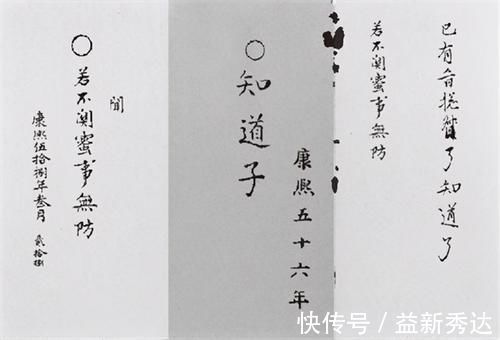 已有旨提督了知道了
若不闗蜜事無防
康熙五十六年
○知道子
聞
○若不闗蜜事無防
康熙伍拾捌年叁月 貳拾捌
快传号 / 益新秀达